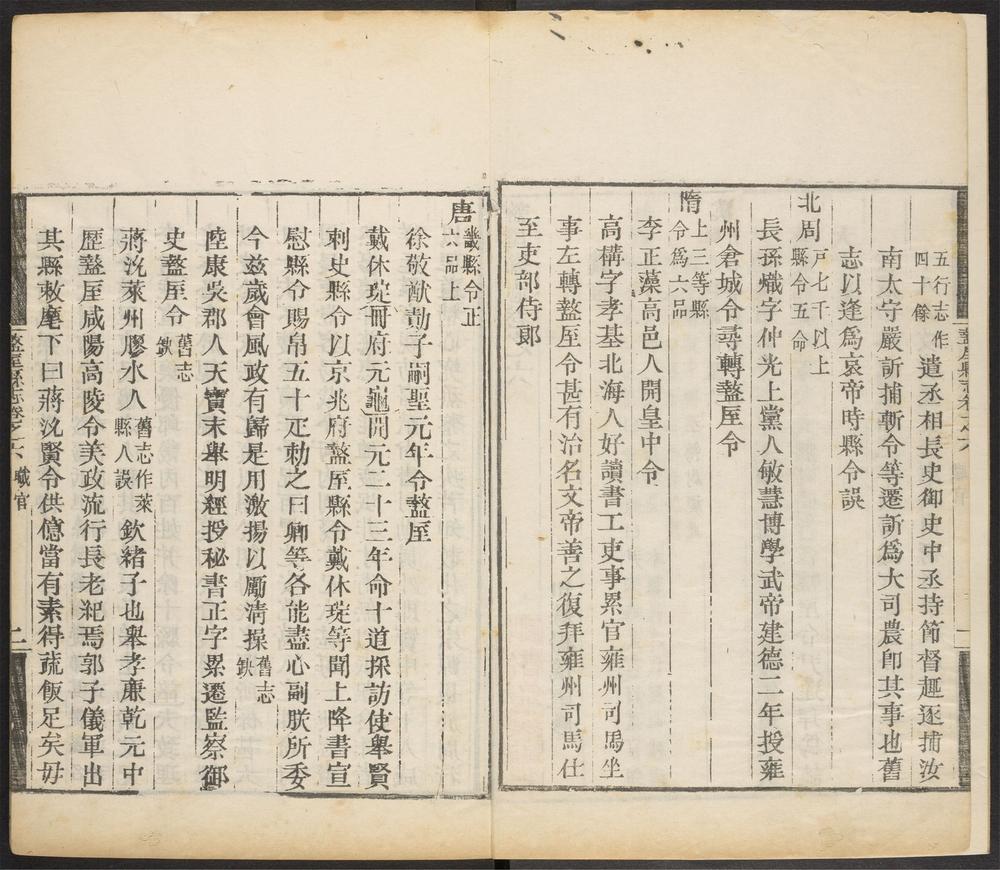 五行志作
四十餘
遣丞相長史御史中丞持節督趣逐捕汝
南太守嚴訢捕斬令等遷訢爲大司農卽其事也舊
志以逢爲哀帝時縣令誤
北周
戸七千以上
縣令五命
長孫熾字仲光上黨人敏慧博學武帝建德二年授雍
州倉城令尋轉盩厔令
隋
上三等縣
令爲六品
李正藻高邑人開皇中令
高構字孝基北海人好讀書工吏事累官雍州司馬坐
事左轉盩厔令甚有治名文帝善之復拜雍州司馬仕
至吏部侍郎
唐
畿縣令正
六品上
徐敬猷勣子嗣聖元年令盩厔
戴休琁冊府元龜開元二十三年命十道採訪使舉賢
刺史縣令以京兆府盩厔縣令戴休琁等聞上降書宣
慰縣令賜帛五十疋勅之曰卿等各能盡心副朕所委
今兹歲會風政有歸是用激揚以勵淸操
舊志
缺
陸康吳郡人天寶末舉明經授秘書正字累遷監察御
史盩厔令
舊志
缺
蔣沇萊州膠水人
舊志作萊
縣人誤
欽緒子也舉孝亷乾元中
歷盩厔咸陽高陵令美政流行長老紀焉郭子儀軍出
其縣敕麾下曰蔣沇賢令供億當有素得蔬飯足矣毋
盩厔縣志卷之六
職官
二